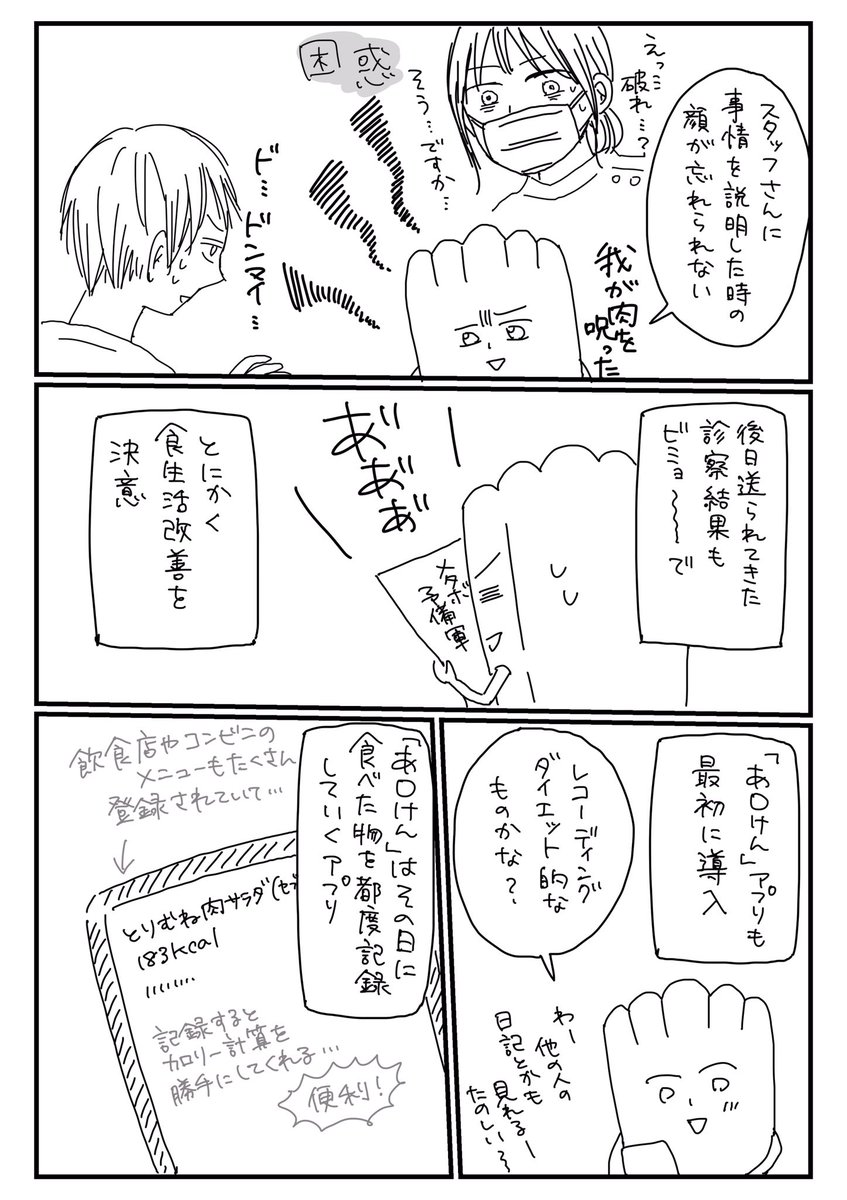 スタッフさんに
事情を説明した時の
顔が忘れられない
えっ…
破れ…?
そう…ですか…
困惑
我が肉を
呪った
ド…
ドンマイ…
後日送られてきた
診察結果も
ビミョ〜〜〜で
メタボ
予備軍
あ゛あ゛あ゛
とにかく
食生活改善を
決意
「あ〇けん」アプリも
最初に導入
レコーディング
ダイエット的な
ものかな?
わー
他の人の
日記とかも
見れるー
たのしい〜
「あ〇けん」はその日に
食べた物を都度記録
していくアプリ
飲食店やコンビニの
メニューもたくさん
登録されていて…
とりむね肉サラダ(セブ
183kcal
………
記録すると
カロリー計算を
勝手にしてくれる…
便利!